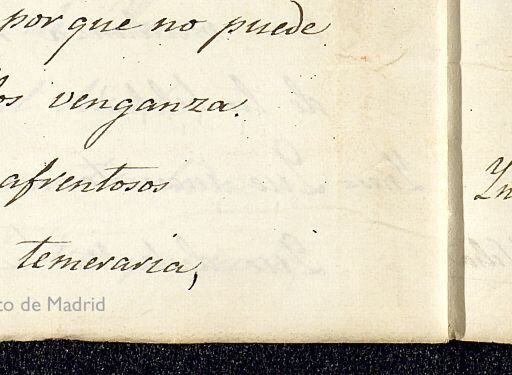 por que no puede
venganza.
afrentosos
temeraria,
to de Madrid